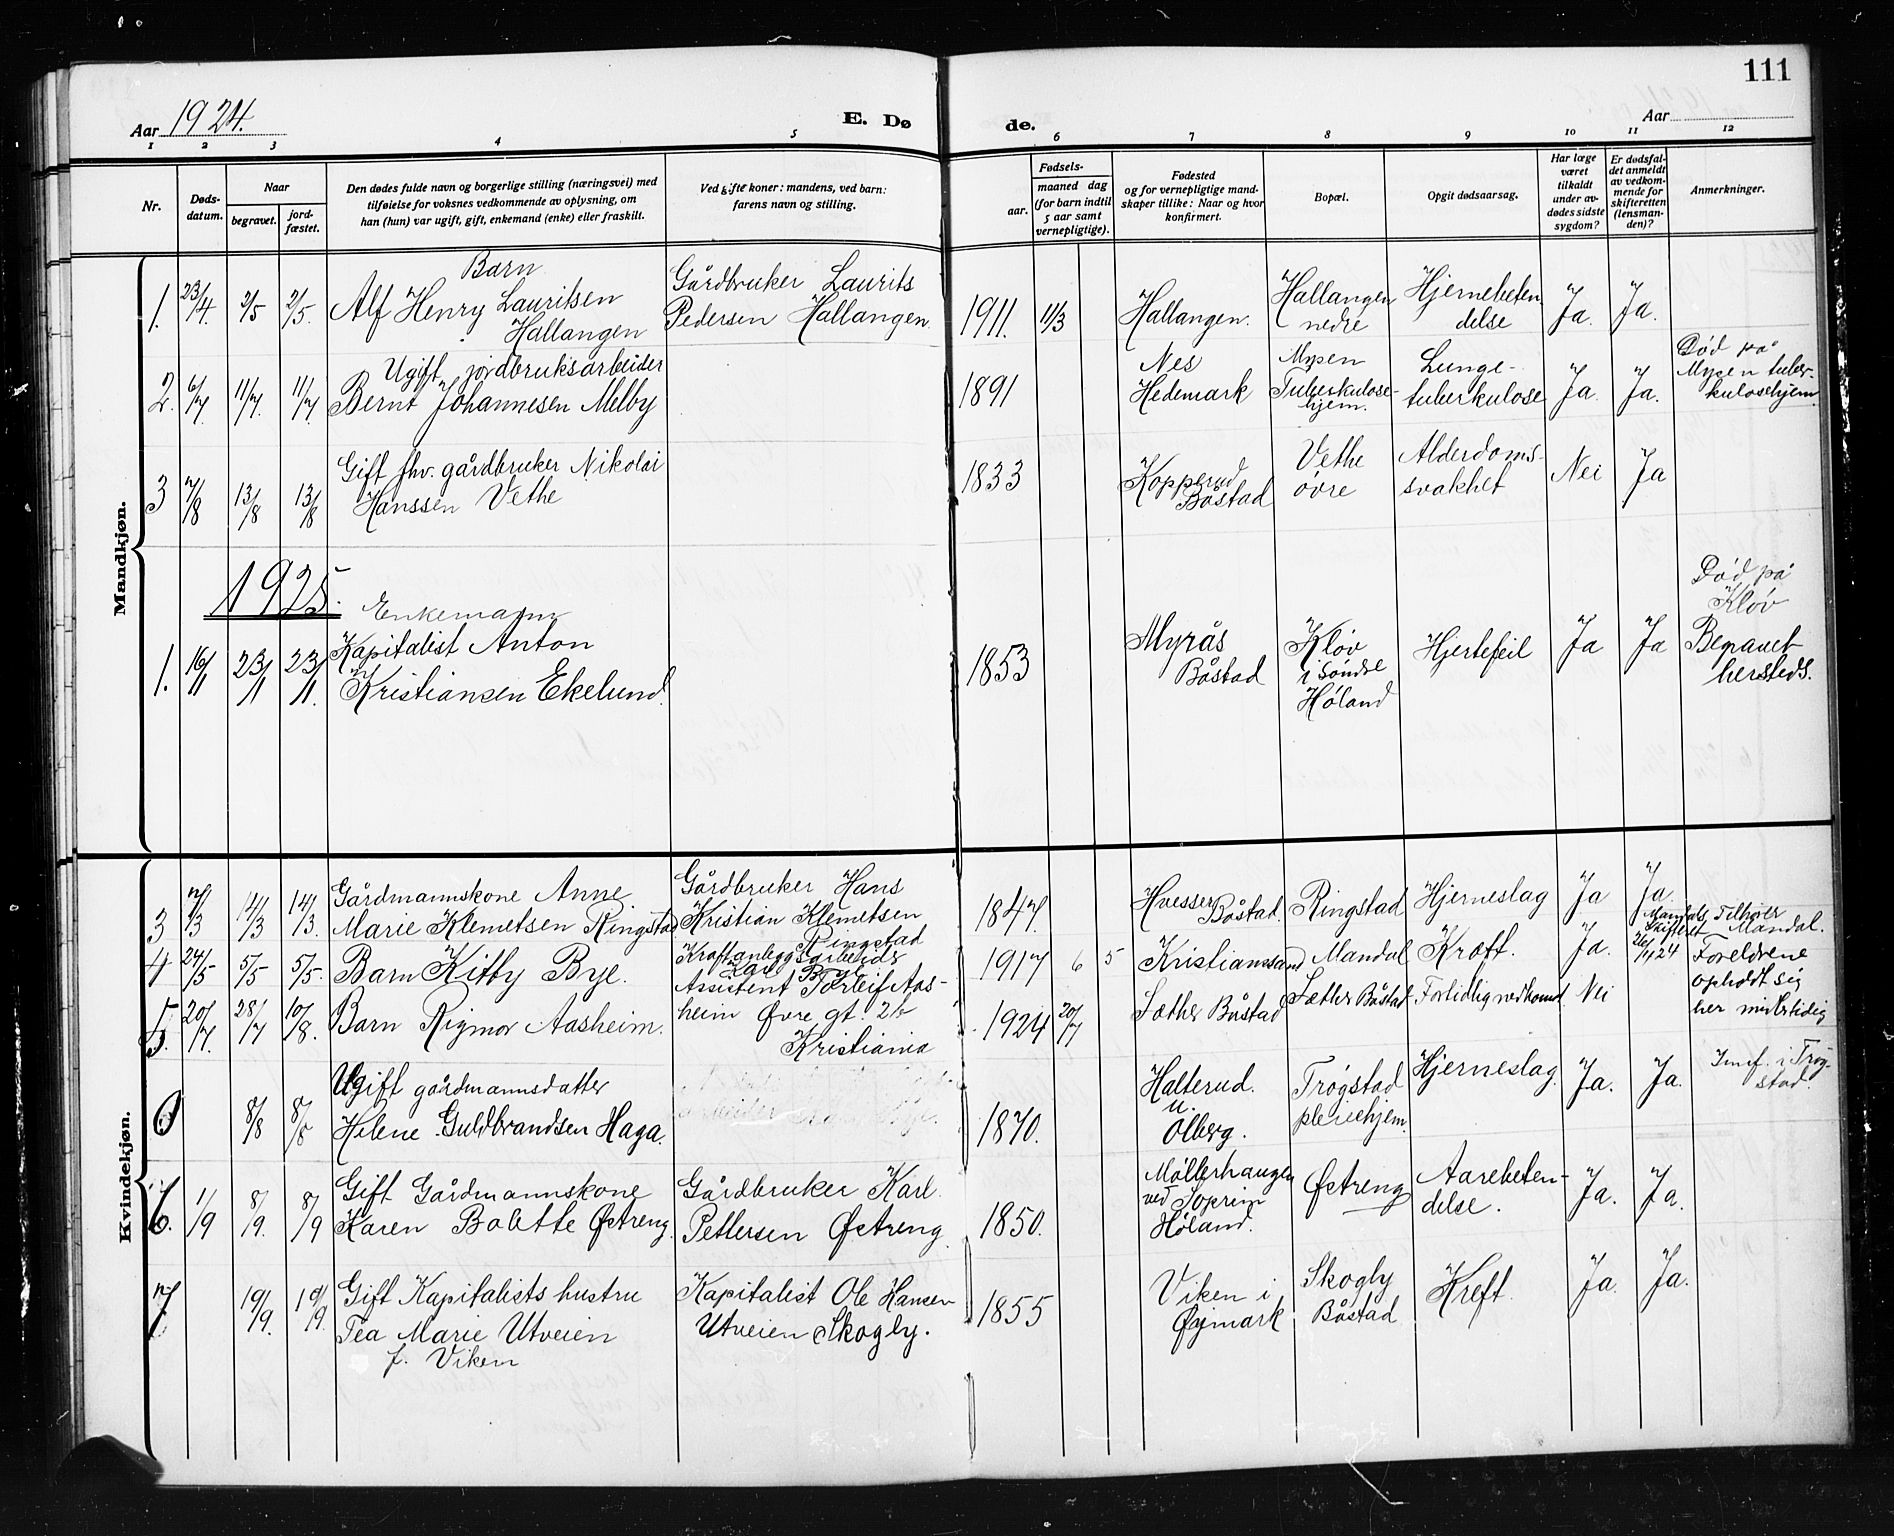 111
Aar 1924. E. Dø de. Aar
1 2 3 4 5 6 7 8 9 10 11 12
Nr.
Døds-
datum.
Naar
begravet.
jord-
fæstet.
Den dødes fulde navn og borgerlige stilling (næringsvei) med
tilføielse for voksnes vedkommende av oplysning, om
han (hun) var ugift, gift, enkemand (enke) eller fraskilt.
Ved gifte koner: mandens, ved barn:
farens navn og stilling.
Fødsels-
aar.
maaned dag
(for barn indtil
5 aar samt
vernepligtige).
Fødested
og for vernepligtige mand-
skaper tillike: Naar og hvor
konfirmert.
Bopæl.
Opgit dødsaarsag.
Har læge
været
tilkaldt
under av-
dødes sidste
sygdom?
Er dødsfal-
det anmeldt
av vedkom-
mende for
skifteretten
(lensman-
den)?
Anmerkninger.
Mandkjøn.
1. 23/4. 2/5 2/5.
Barn
Alf Henry Lauritsen
Hallangen
Gårdbruker Laurits
Pedersen Hallangen.
1911. 11/3
Hallangen.
Hallangen
nedre
Hjernebeten
delse
Ja. Ja.
2. 6/7 11/7. 11/7
Ugift jordbruksarbeider
Bernt Johannesen Melby
1891
Nes
Hedemark
Mysen
Tuberkulose-
hjem.
Lunge-
tuberkulose
Ja. Ja.
Død på
Mysen tuber-
kulosehjem.
3 7/8 13/8 13/8
Gift fhv. gårdbruker Nikolai
Hanssen Vethe
1833
Kopperud
Båstad
Vethe
øvre
Alderdoms-
svakhet
Nei Ja
1925.
Enkemann
1. 16/1 23/1 23/1.
Kapitalist Anton
Kristiansen Ekelund.
1853
Myrås
Båstad
Kløv
i Søndre
Høland
Hjertefeil
Ja Ja
Død på
Kløv
Begravet
hersteds.
Kvindekjøn.
3 7/3 14/3 14/3.
Gårdmannskone Anne
Marie Klemetsen Ringstad
Gårdbruker Hans
Kristian Klemetsen
Ringstad
1847.
Hvesser
Båstad.
Ringstad
Hjerneslag
Ja Ja.
4 24/5 5/5 5/5.
Barn Kitty Bye.
Kraftanleggsarbeider
1917 6 5
Kristianssand
Mandal
Kræft.
Ja.
Mandals
skifteret
26/4 24
Tilhører
Mandal.
5. 20/7. 28/7 10/8.
Barn Rigmor Aasheim.
Assistent Torleif Aas-
heim Øvre gt. 2b
Kristiania
1924 20/7
Sæther Båstad
Sæther Båstad
Fortidlig nedkomst
Nei
Foreldrene
opholdt sig
her midlertidig
0 8/8 8/8
Ugift gårdmannsdatter
Helene Guldbrandsen Haga.
1870.
Halterud.
u.
Olberg.
Trøgstad
pleiehjem.
Hjerneslag.
Ja. Ja.
Innf. i Trøg-
stad.
6. 1/9 8/9. 8/9
Gift Gårdmannskone
Karen Bolette Østreng.
Gårdbruker Karl
Pettersen Østreng.
1850.
Møllerhaugen
ved
Høland.
Østreng
Aarebeten-
delse.
Ja. Ja.
7 19/9. 19/9.
Gift Kapitalists hustru
Tea Marie Utveien
f. Viken
Kapitalist Ole Hansen
Utveien Skogly.
1855
Viken i
Øymark
Skogly
Båstad
Kreft.
Ja. Ja.